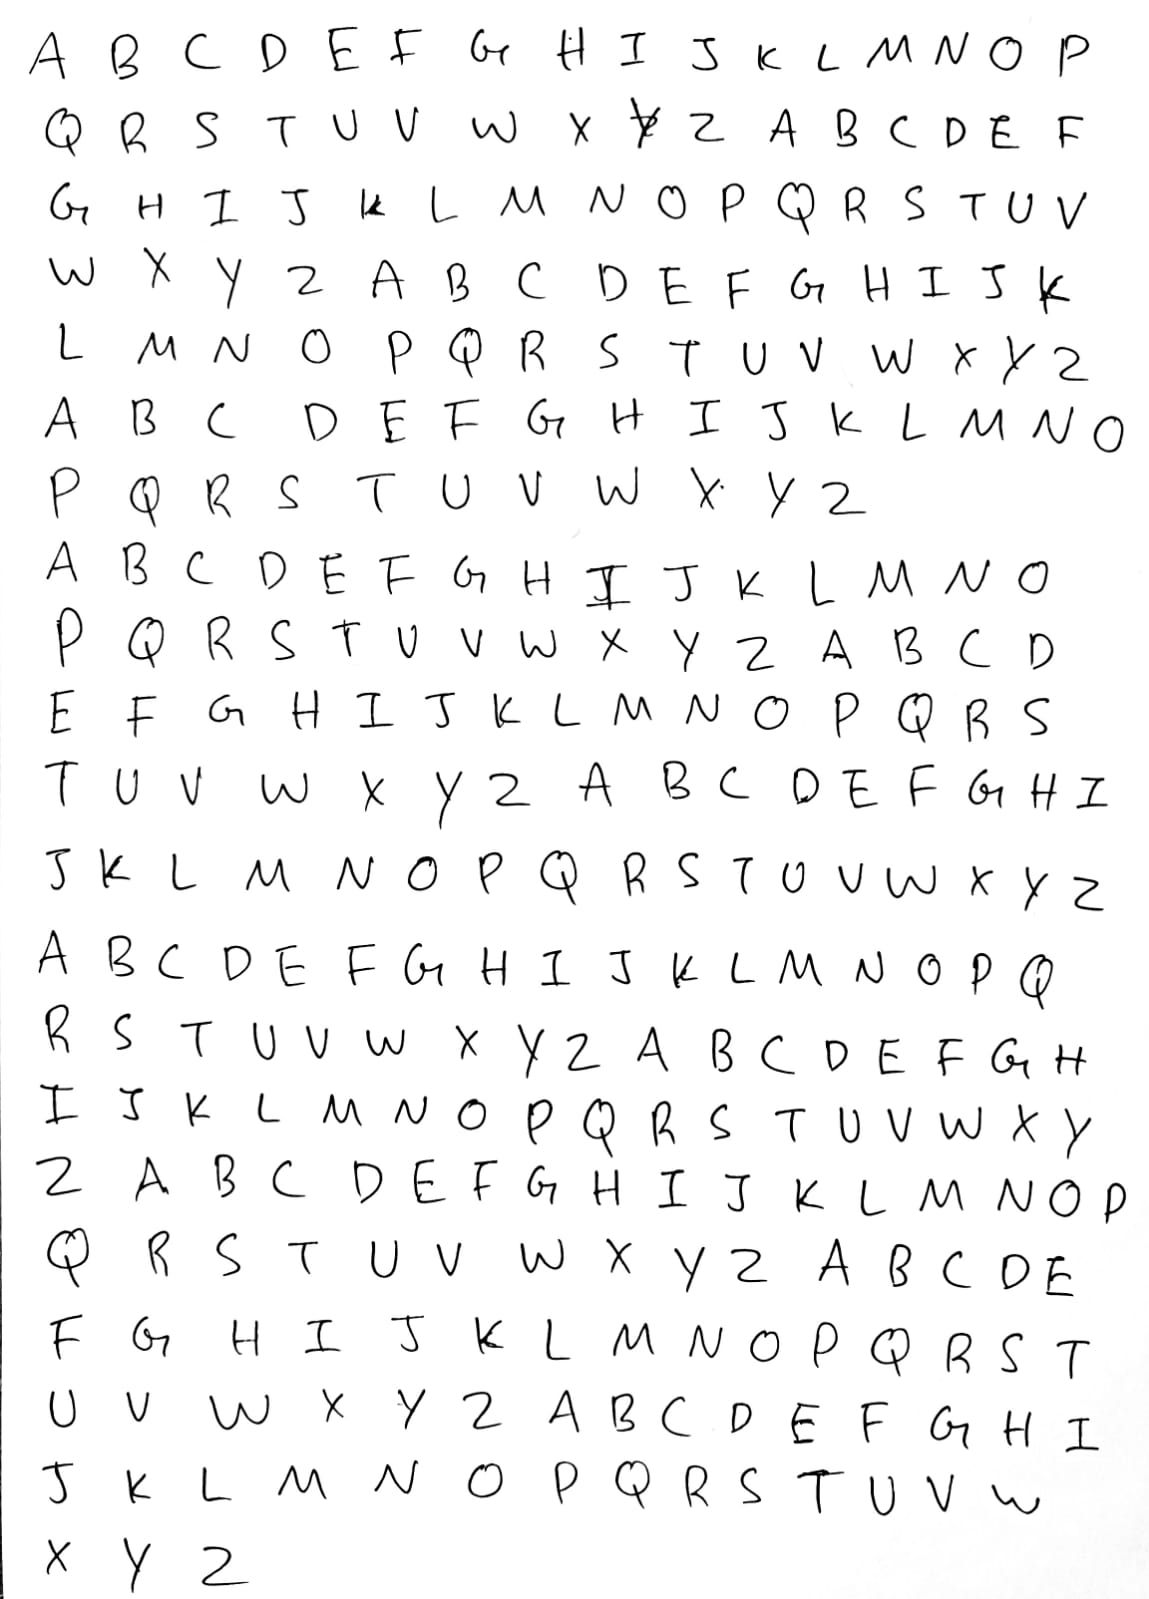 A B C D E F G H I J K L M N O P
Q R S T U V W X Y Z A B C D E F
G H I J K L M N O P Q R S T U V
W X Y Z A B C D E F G H I J K
L M N O P Q R S T U V W X Y Z
A B C D E F G H I J K L M N O
P Q R S T U V W X Y Z
A B C D E F G H I J K L M N O
P Q R S T U V W X Y Z A B C D
E F G H I J K L M N O P Q R S
T U V W X Y Z A B C D E F G H I
J K L M N O P Q R S T U V W X Y Z
A B C D E F G H I J K L M N O P Q
R S T U V W X Y Z A B C D E F G H
I J K L M N O P Q R S T U V W X Y
Z A B C D E F G H I J K L M N O P
Q R S T U V W X Y Z A B C D E
F G H I J K L M N O P Q R S T
U V W X Y Z A B C D E F G H I
J K L M N O P Q R S T U V W
X Y Z